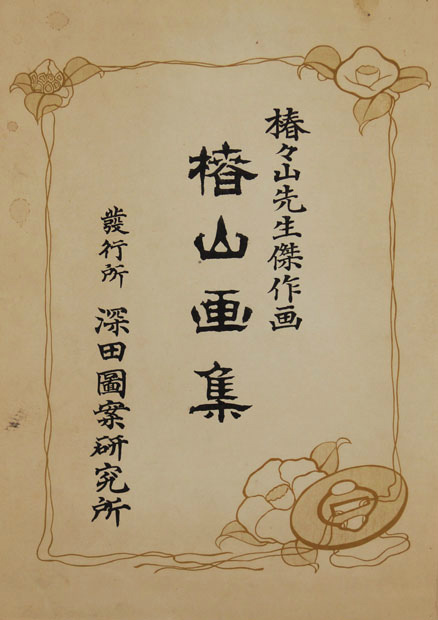 椿々山先生傑作画
椿山画集
發行所 深田圖案研究所